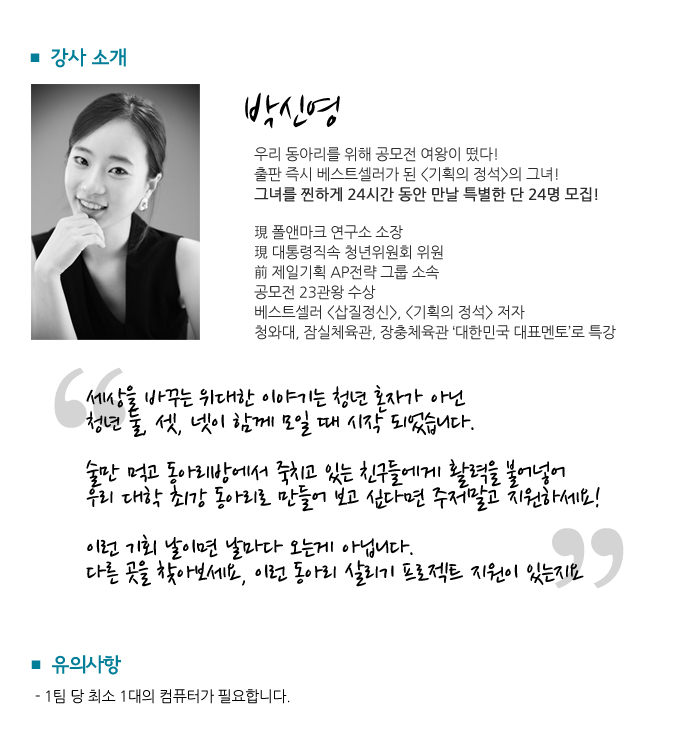 ■ 강사 소개
박신영
우리 동아리를 위해 공모전 여왕이 떴다!
출판 즉시 베스트셀러가 된 <기획의 정석>의 그녀!
그녀를 찐하게 24시간 동안 만날 특별한 단 24명 모집!
現 폴앤마크 연구소 소장
現 대통령직속 청년위원회 위원
前 제일기획 AP전략 그룹 소속
공모전 23관왕 수상
베스트셀러 <삽질정신>, <기획의 정석> 저자
청와대, 잠실체육관, 장충체육관 ‘대한민국 대표멘토’로 특강
“
세상을 바꾸는 위대한 이야기는 청년 혼자가 아닌
청년 둘, 셋, 넷이 함께 모일 때 시작 되었습니다.
술만 먹고 동아리방에서 죽치고 있는 친구들에게 활력을 불어넣어
우리 대학 최강 동아리로 만들어 보고 싶다면 주저말고 지원하세요!
이런 기회 날이면 날마다 오는게 아닙니다.
다른 곳을 찾아보세요, 이런 동아리 살리기 프로젝트 지원이 있는지요
”
■ 유의사항
- 1팀 당 최소 1대의 컴퓨터가 필요합니다.